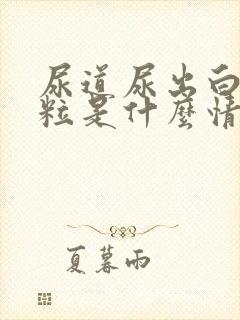 尿道尿出白
粒是什麼情
夏暮雨